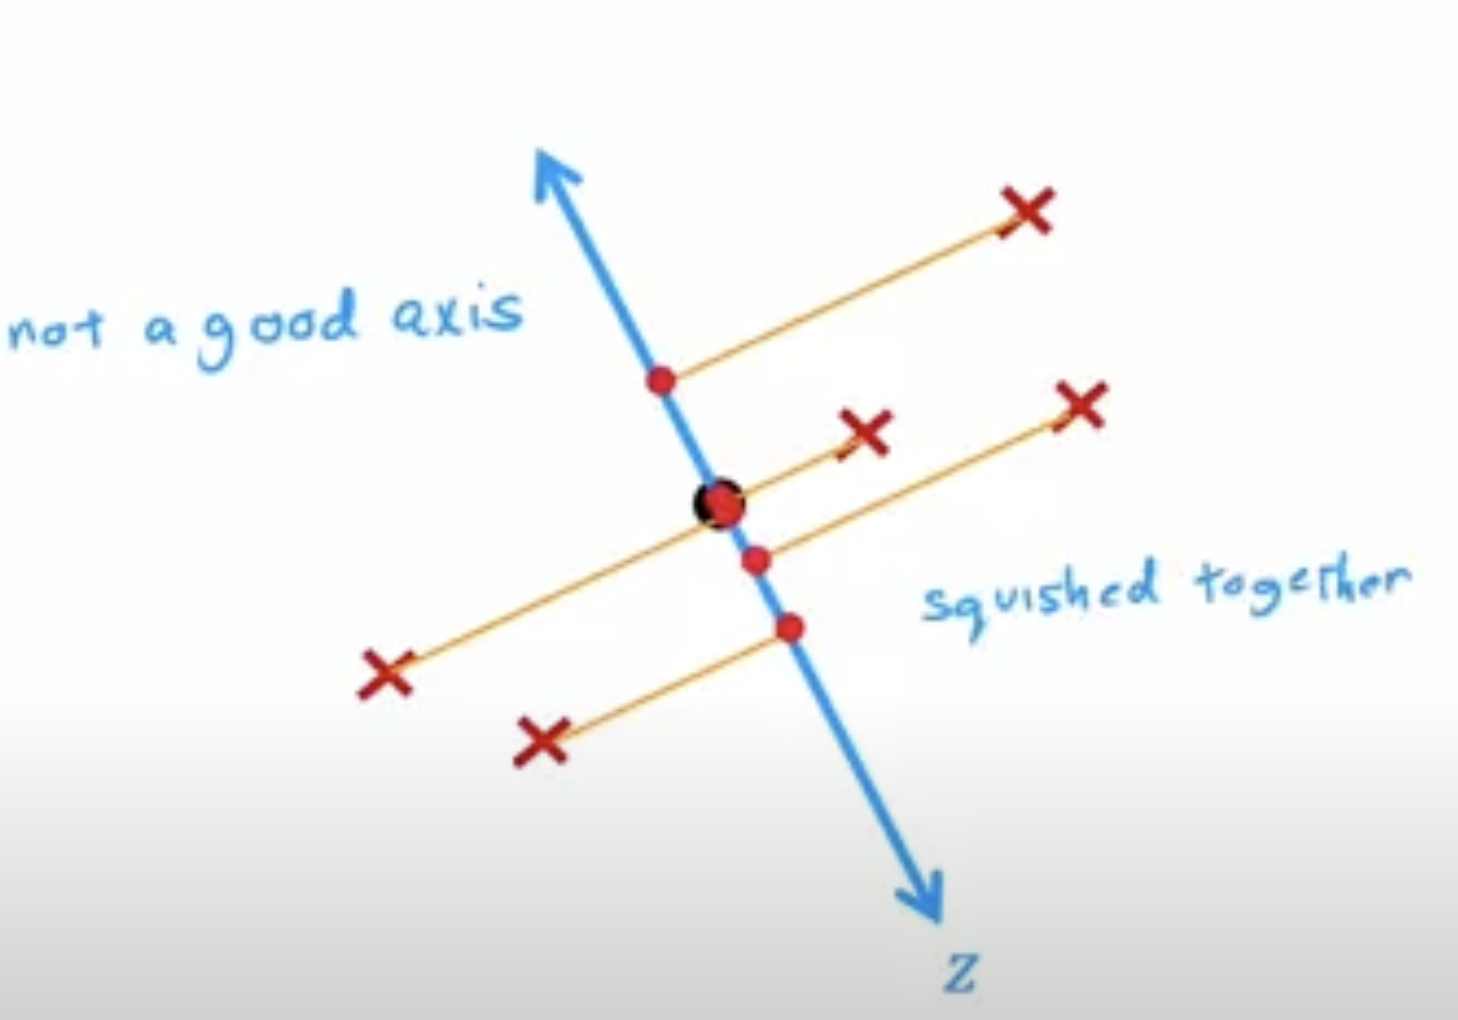 not a good axis
squished together
z